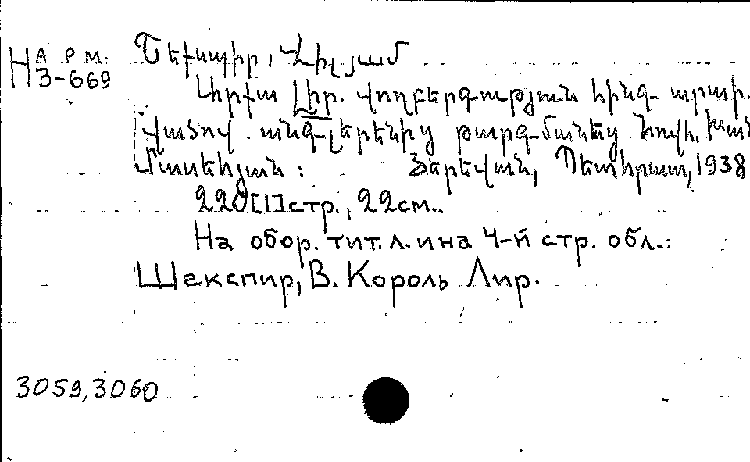 НА РМ.
3-669
Շեքսպիր, Վիլյամ
Լիր. վողբերգության հինգ արար-
վածով. անգլերենից թարգմանեց հովհ. խան
Մասեհյան: Յերեվան, Պետհրատ, 1938
220[1]стр., 22см.
На обор. тит. л. и на 4-й стр. обл.:
Шекспир, В. Король Лир.
3059,3060